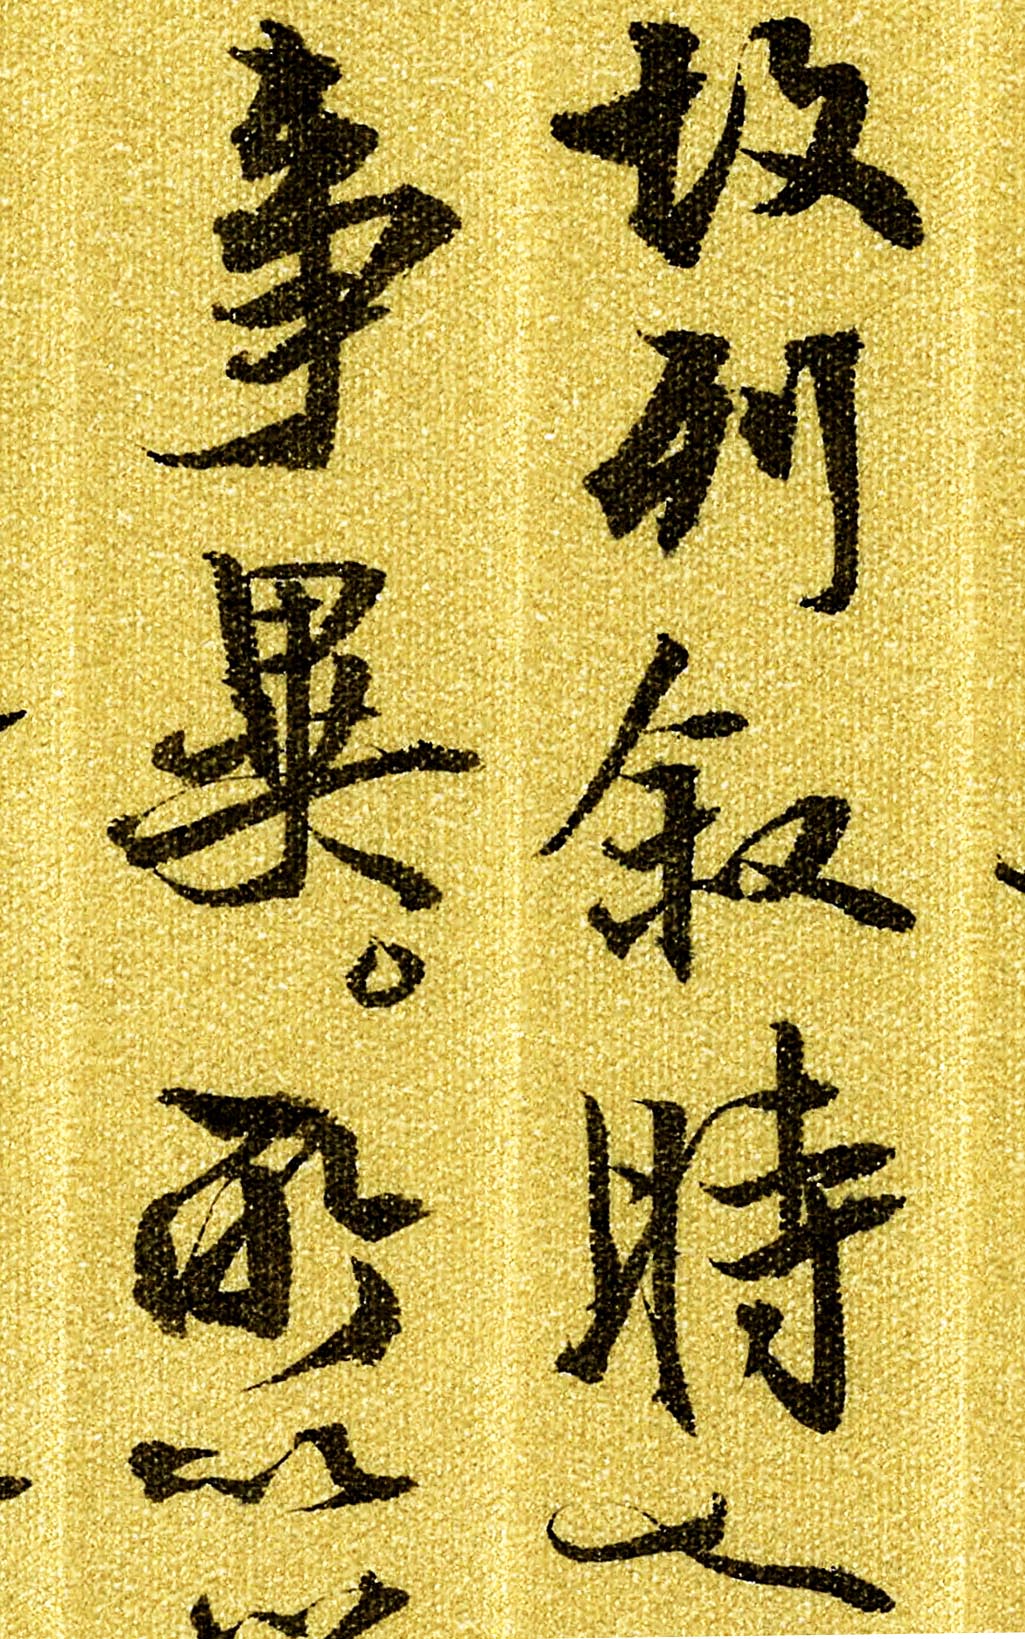 故列叙時人
事異。所以